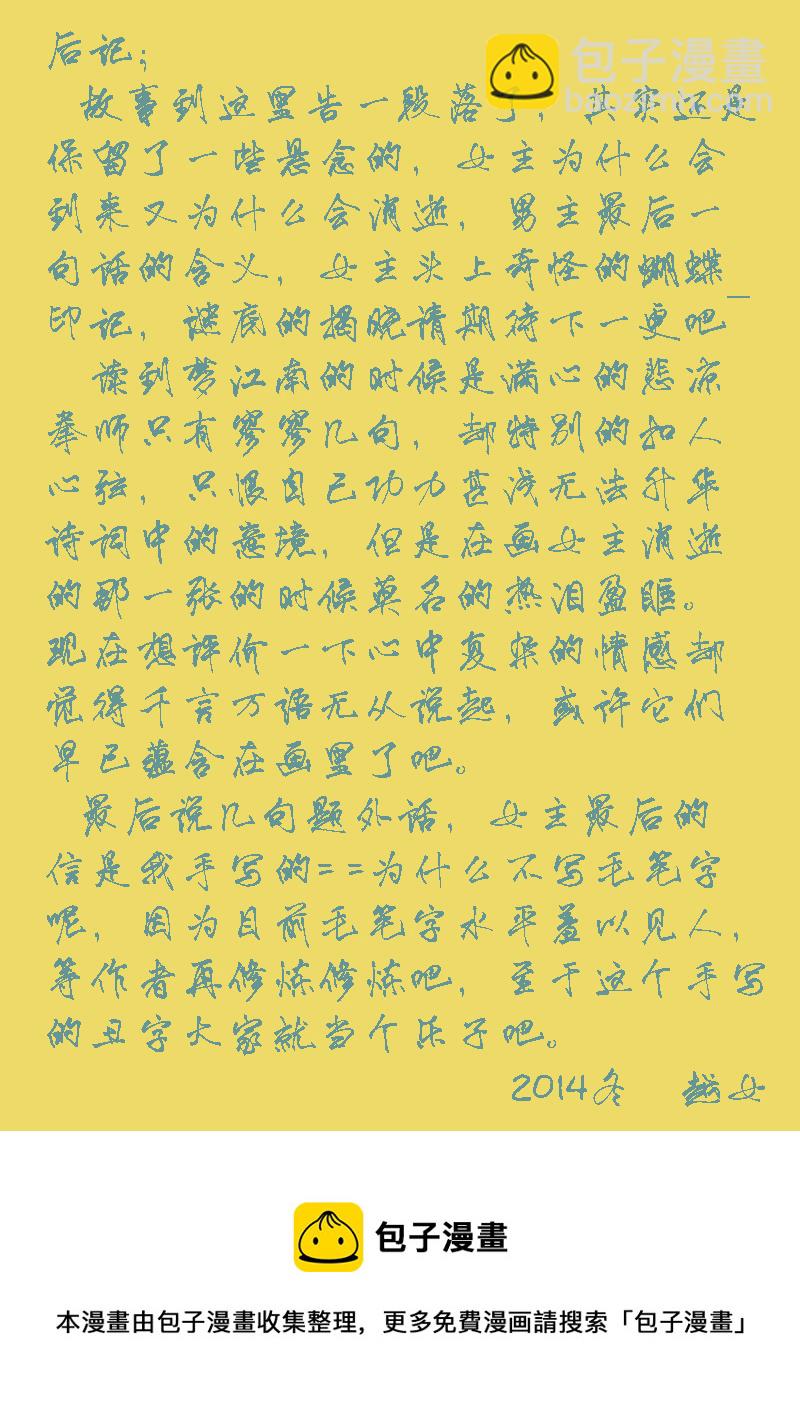 后记；
包子漫畫
baozimh.com
故事到这里告一段落了，其实还是
保留了一些悬念的，女主为什么会
到来又为什么会消逝，男主最后一
句话的含义，女主头上奇怪的蝴蝶_
印记，谜底的揭晓请期待下一更吧
读到梦江南的时候是满心的悲凉
拳师只有寥寥几句，却特别的扣人
心弦，只恨自己功力甚浅无法升华
诗词中的意境，但是在画女主消逝
的那一张的时候莫名的热泪盈眶。
现在想评价一下心中复杂的情感却
觉得千言万语无从说起，或许它们
早已蕴含在画里了吧。
最后说几句题外话，女主最后的
信是我手写的==为什么不写毛笔字
呢，因为目前毛笔字水平羞以见人，
等作者再修炼修炼吧，至于这个手写
的丑字大家就当个乐子吧。
2014冬 越女
包子漫畫
本漫畫由包子漫畫收集整理，更多免費漫画請搜索「包子漫畫」